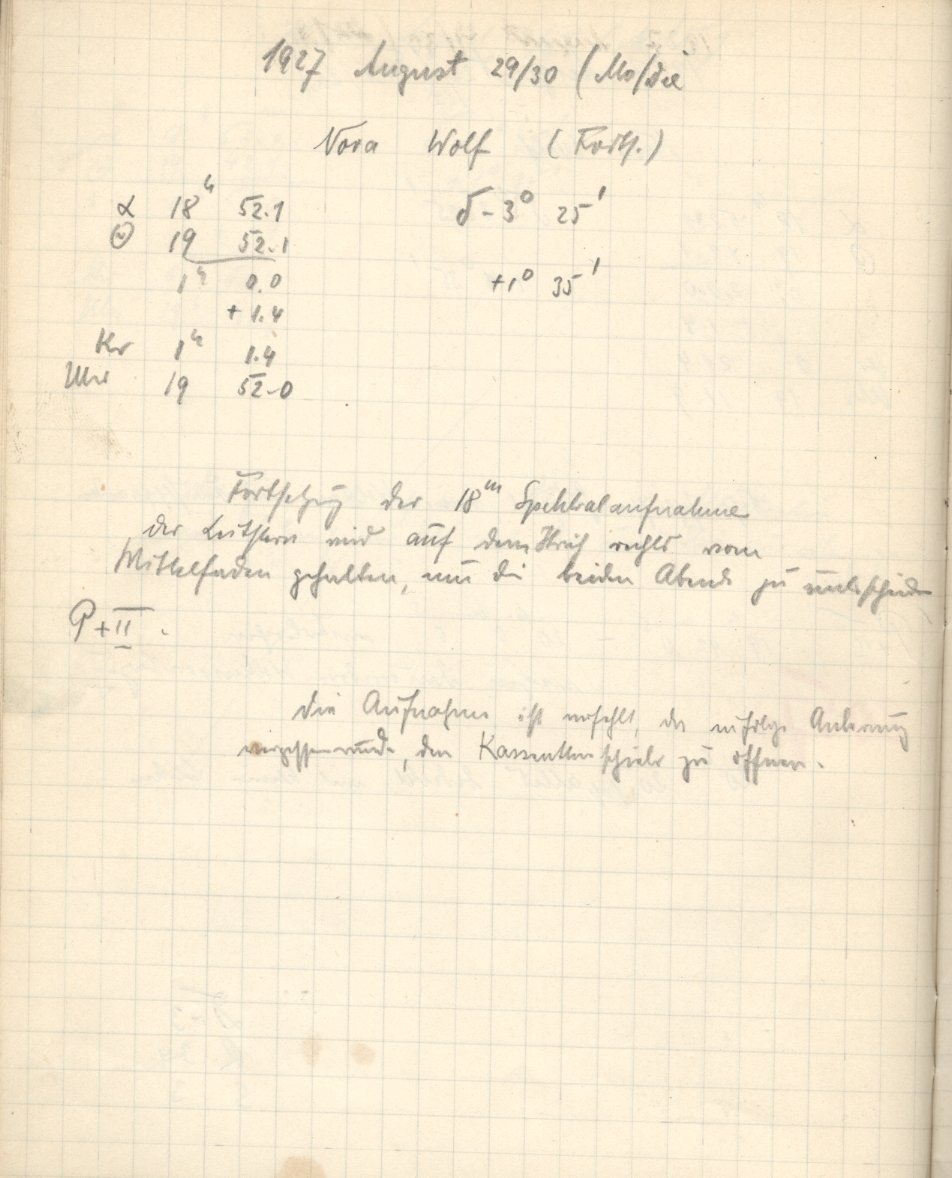 1927 August 29/30 (Mo/Die
Nova Wolf (Forts.)
α 18h 52.1 δ - 3° 25'
Θ 19 52.1
1h 0.0 +1° 35'
+ 1.4
1h 1.4
Uhr 19 52.0
Fortsetzung der 18m Spektralaufnahme
der Leitstern wird auf dem Strich rechts vom
Mittelfaden gehalten, um die beiden Abende zu unterscheiden
P + II.
Die Aufnahme ist verfehlt, da infolge
vergessen wurde, den Kassettenschieber zu öffnen.